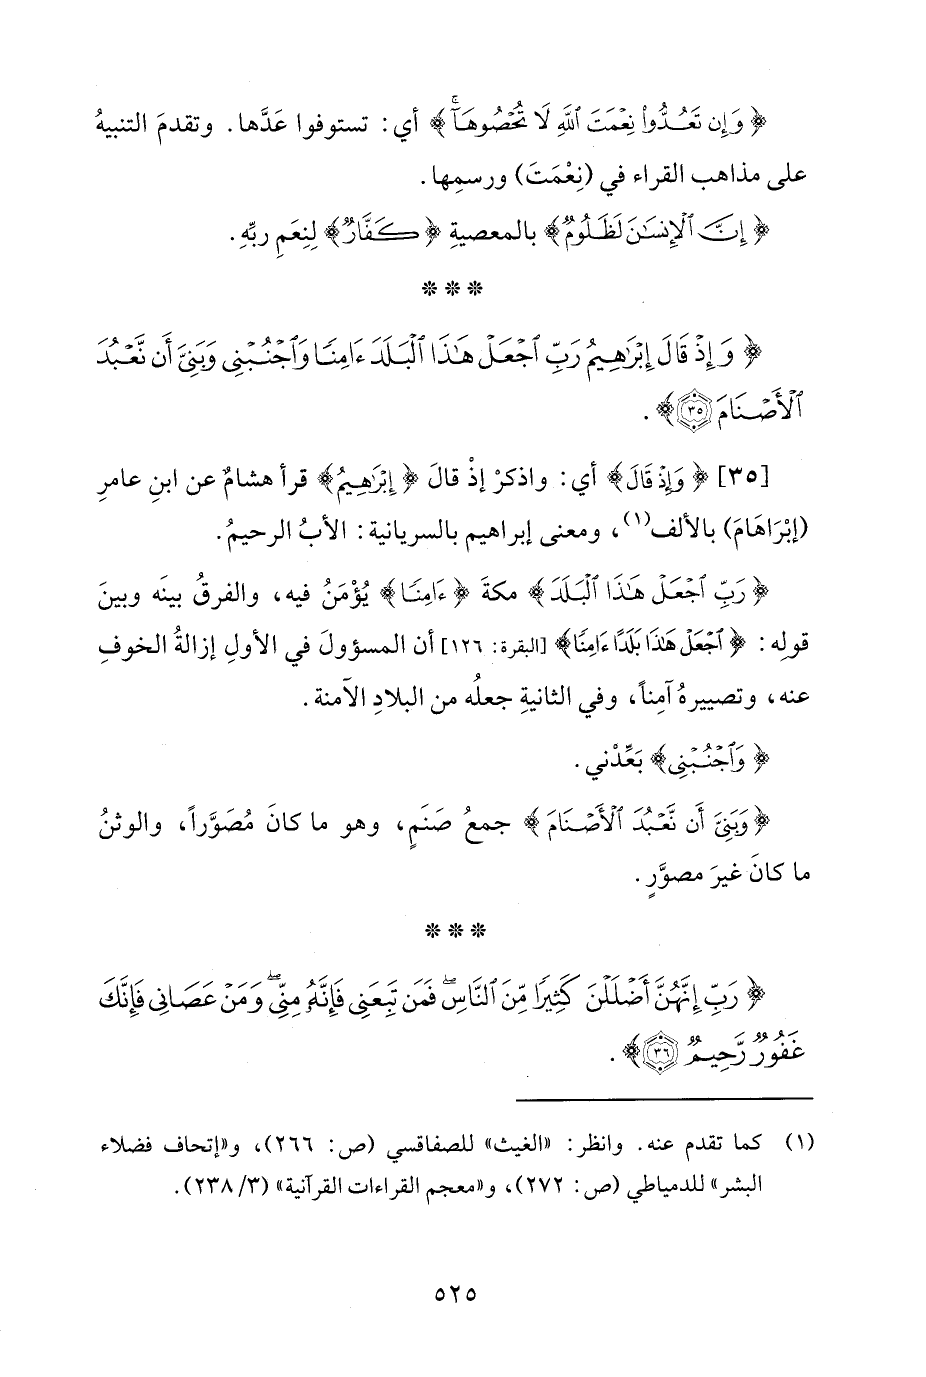 ﴿وَإِن تَعُدُّوا۟ نِعْمَتَ ٱللَّهِ لَا تُحْصُوهَآ ۚ﴾ أي: تستوفوا عَدَّها. وتقدمَ التنبيهُ
على مذاهب القراء في (نِعْمَتَ) ورسمِها.
﴿إِنَّ ٱلْإِنسَٰنَ لَظَلُومٌ﴾ بالمعصيةِ ﴿كَفَّارٌ﴾ لِنِعَمِ ربِّهِ.
* * *
﴿وَإِذْ قَالَ إِبْرَٰهِيمُ رَبِّ ٱجْعَلْ هَٰذَا ٱلْبَلَدَ ءَامِنًا وَٱجْنُبْنِى وَبَنِىَّ أَن نَّعْبُدَ
ٱلْأَصْنَامَ ٣٥﴾.
[٣٥] ﴿وَإِذْ قَالَ﴾ أي: واذكرْ إذْ قالَ ﴿إِبْرَٰهِيمُ﴾ قرأ هشامٌ عن ابنِ عامرٍ
(إِبْرَاهَامَ) بالألف(١)، ومعنى إبراهيم بالسريانية: الأبُ الرحيمُ.
﴿رَبِّ ٱجْعَلْ هَٰذَا ٱلْبَلَدَ﴾ مكةَ ﴿ءَامِنًا﴾ يُؤْمَنُ فيه، والفرقُ بينَه وبينَ
قولِه: ﴿ٱجْعَلْ هَٰذَا بَلَدًا ءَامِنًا﴾ [البقرة: ١٢٦] أن المسؤولَ في الأولِ إزالةُ الخوفِ
عنه، وتصييرهُ آمِناً، وفي الثانيةِ جعلُه من البلادِ الآمنة.
﴿وَٱجْنُبْنِى﴾ بَعِّدْني.
﴿وَبَنِىَّ أَن نَّعْبُدَ ٱلْأَصْنَامَ﴾ جمعُ صَنَمٍ، وهو ما كانَ مُصَوَّراً، والوثنُ
ما كانَ غيرَ مصوَّرٍ.
* * *
﴿رَبِّ إِنَّهُنَّ أَضْلَلْنَ كَثِيرًا مِّنَ ٱلنَّاسِ ۖ فَمَن تَبِعَنِى فَإِنَّهُۥ مِنِّى ۖ وَمَنْ عَصَانِى فَإِنَّكَ
غَفُورٌ رَّحِيمٌ ٣٦﴾.
(١) كما تقدم عنه. وانظر: «الغيث» للصفاقسي (ص: ٢٦٦)، و«إتحاف فضلاء
البشر» للدمياطي (ص: ٢٧٢)، و«معجم القراءات القرآنية» (٣/ ٢٣٨).
٥٢٥